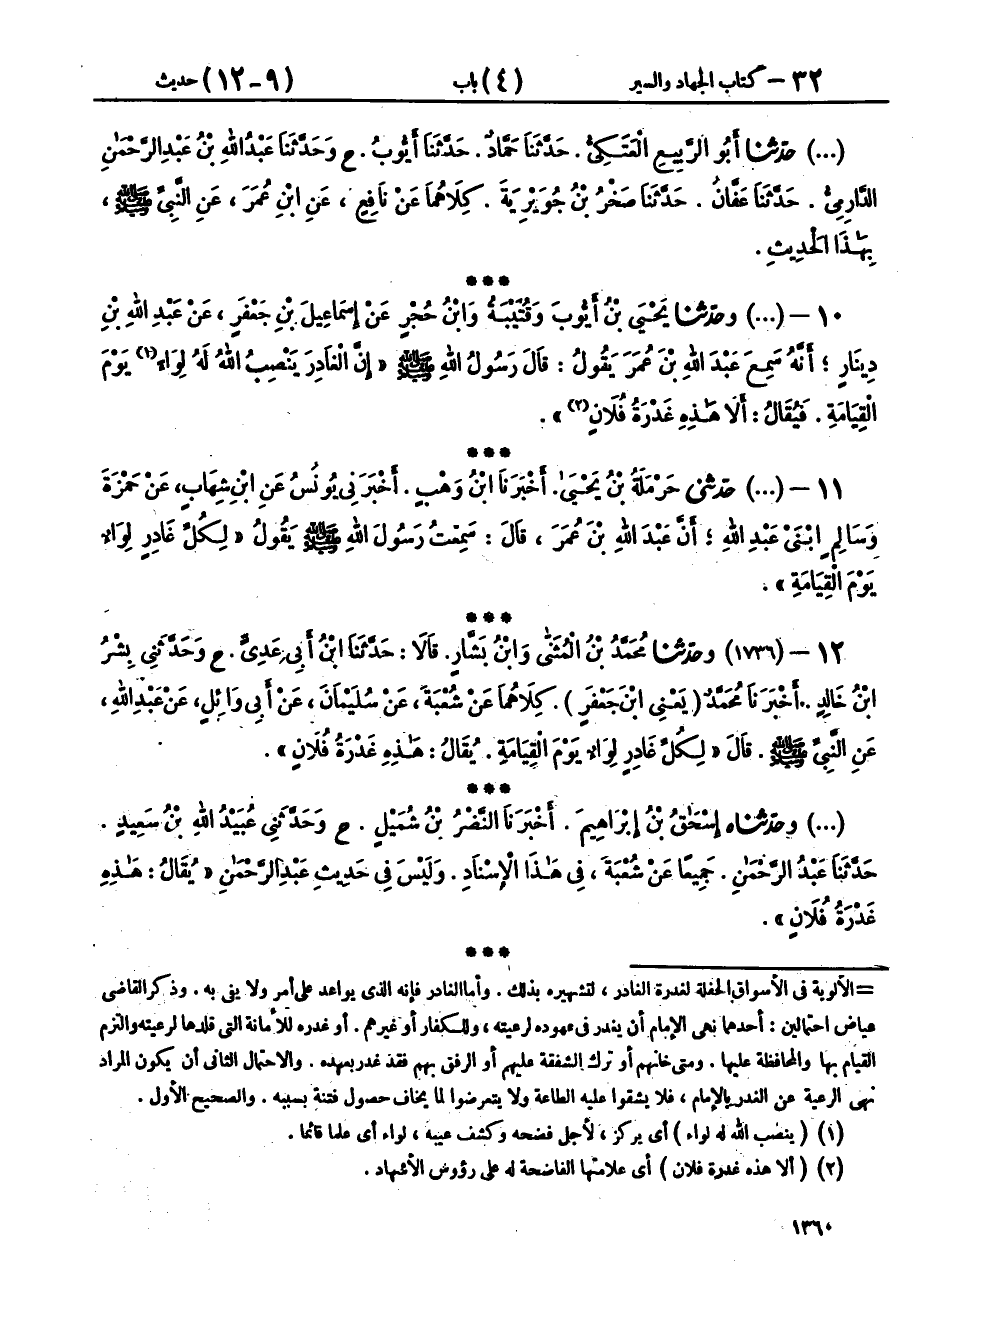 ٣٢ – كتاب الجهاد والسير (٤) باب (٩-١٢) حديث
(...) حدثنا أَبُو الرَّبِيعِ الْعَتَكِيُّ . حَدَّثَنَا حَمَّادٌ . حَدَّثَنَا أَيُّوبُ . ح وَحَدَّثَنَا عَبْدُ اللهِ بْنُ عَبْدِ الرَّحْمٰنِ
الدَّارِمِيُّ . حَدَّثَنَا عَفَّانُ . حَدَّثَنَا صَخْرُ بْنُ جُوَيْرِيَةَ . كِلَاهُمَا عَنْ نَافِعٍ ، عَنِ ابْنِ عُمَرَ ، عَنِ النَّبِيِّ ﷺ ،
بِهٰذَا الْحَدِيثِ .
***
١٠ – (...) وحدثنا يَحْيَى بْنُ أَيُّوبَ وَقُتَيْبَةُ وَابْنُ حُجْرٍ عَنْ إِسْمَاعِيلَ بْنِ جَعْفَرٍ ، عَنْ عَبْدِ اللهِ بْنِ
دِينَارٍ ؛ أَنَّهُ سَمِعَ عَبْدَ اللهِ بْنَ عُمَرَ يَقُولُ : قَالَ رَسُولُ اللهِ ﷺ « إِنَّ الْغَادِرَ يَنْصِبُ اللهُ لَهُ لِوَاءً (١) يَوْمَ
الْقِيَامَةِ . فَيُقَالُ : أَلَا هٰذِهِ غَدْرَةُ فُلَانٍ (٢) » .
***
١١ – (...) حدثني حَرْمَلَةُ بْنُ يَحْيَىٰ . أَخْبَرَنَا ابْنُ وَهْبٍ . أَخْبَرَنِي يُونُسُ عَنِ ابْنِ شِهَابٍ، عَنْ حَمْزَةَ
وَسَالِمٍ ابْنَيْ عَبْدِ اللهِ ؛ أَنَّ عَبْدَ اللهِ بْنَ عُمَرَ ، قَالَ : سَمِعْتُ رَسُولَ اللهِ ﷺ يَقُولُ « لِكُلِّ غَادِرٍ لِوَاءٌ
يَوْمَ الْقِيَامَةِ » .
***
١٢ – (١٧٣٦) وحدثنا مُحَمَّدُ بْنُ الْمُثَنَّى وَابْنُ بَشَّارٍ. قَالَا : حَدَّثَنَا ابْنُ أَبِي عَدِيٍّ . ح وَحَدَّثَنِي بِشْرُ
ابْنُ خَالِدٍ . أَخْبَرَنَا مُحَمَّدٌ ( يَعْنِي ابْنَ جَعْفَرٍ ) . كِلَاهُمَا عَنْ شُعْبَةَ ، عَنْ سُلَيْمَانَ ، عَنْ أَبِي وَائِلٍ، عَنْ عَبْدِ اللهِ ،
عَنِ النَّبِيِّ ﷺ . قَالَ « لِكُلِّ غَادِرٍ لِوَاءٌ يَوْمَ الْقِيَامَةِ . يُقَالُ : هٰذِهِ غَدْرَةُ فُلَانٍ » .
***
(...) وحدثناه إِسْحٰقُ بْنُ إِبْرَاهِيمَ . أَخْبَرَنَا النَّضْرُ بْنُ شُمَيْلٍ . ح وَحَدَّثَنِي عُبَيْدُ اللهِ بْنُ سَعِيدٍ .
حَدَّثَنَا عَبْدُ الرَّحْمٰنِ . جَمِيعًا عَنْ شُعْبَةَ ، فِي هٰذَا الْإِسْنَادِ . وَلَيْسَ فِي حَدِيثِ عَبْدِ الرَّحْمٰنِ « يُقَالُ : هٰذِهِ
غَدْرَةُ فُلَانٍ » .
***
= الألوية في الأسواق الحفلة لغدرة الغادر ، لتشهيره بذلك . وأما الغادر فإنه الذي يواعد على أمر ولا يفي به . وذكر القاضي
عياض احتمالين : أحدها نهى الإمام أن يغدر في عهوده لرعيته ، وللكفار أو غيرهم . أو غدره للأمانة التي قلدها لرعيته والتزم
القيام بها والمحافظة عليها . ومتى خانهم أو ترك الشفقة عليهم أو الرفق بهم فقد غدر بعهده . والاحتمال الثاني أن يكون المراد
نهى الرعية عن الغدر بالإمام ، فلا يشقوا عليه الطاعة ولا يتعرضوا لما يخاف حصول فتنة بسببه . والصحيح الأول .
(١) ( ينصب الله له لواء ) أي يركز ، لأجل فضحه وكشف عيبه ، لواء أي علما قائما .
(٢) ( ألا هذه غدرة فلان ) أي علامتها الفاضحة له على رؤوس الأشهاد .
١٣٦٠